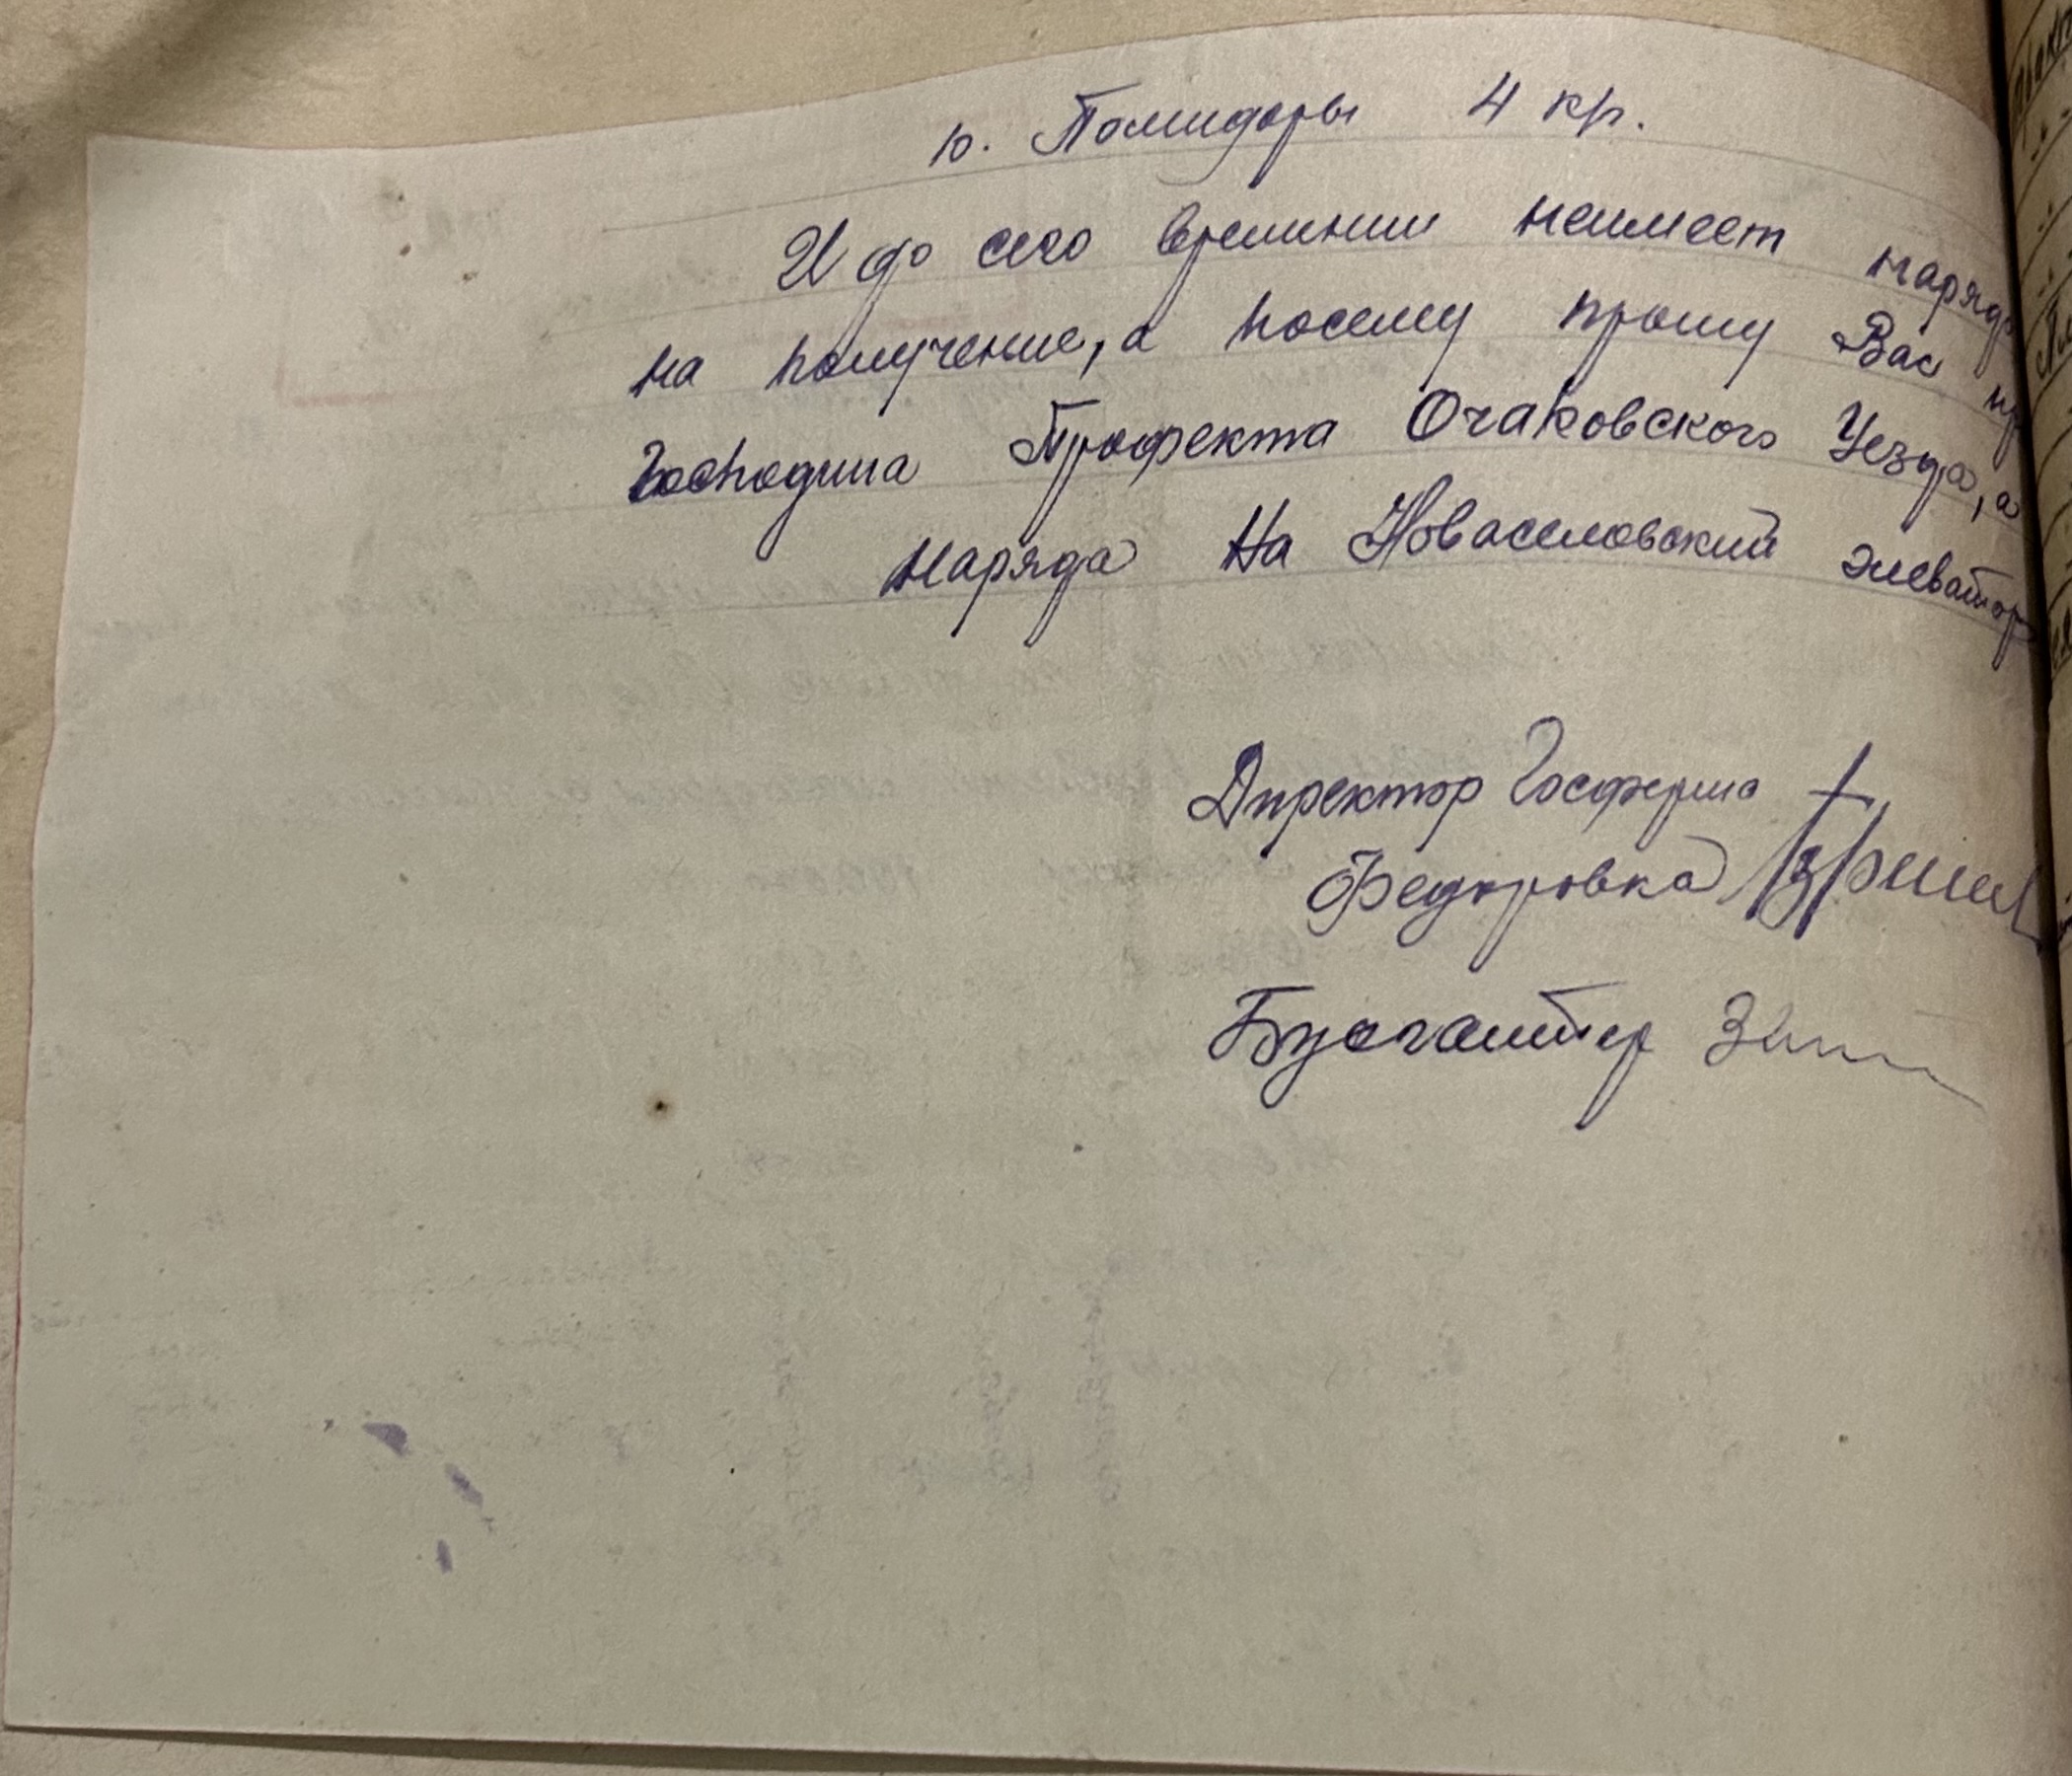 10. Помидоры 4 кр.
И до сего времинии неимеет наряда
на получение, а посему прошу Вас
Господина Профекта Очаковского Уезда, а
наряда На Новаселовский элеватор
Директор Госферма
Федоровка
Бухгалтер